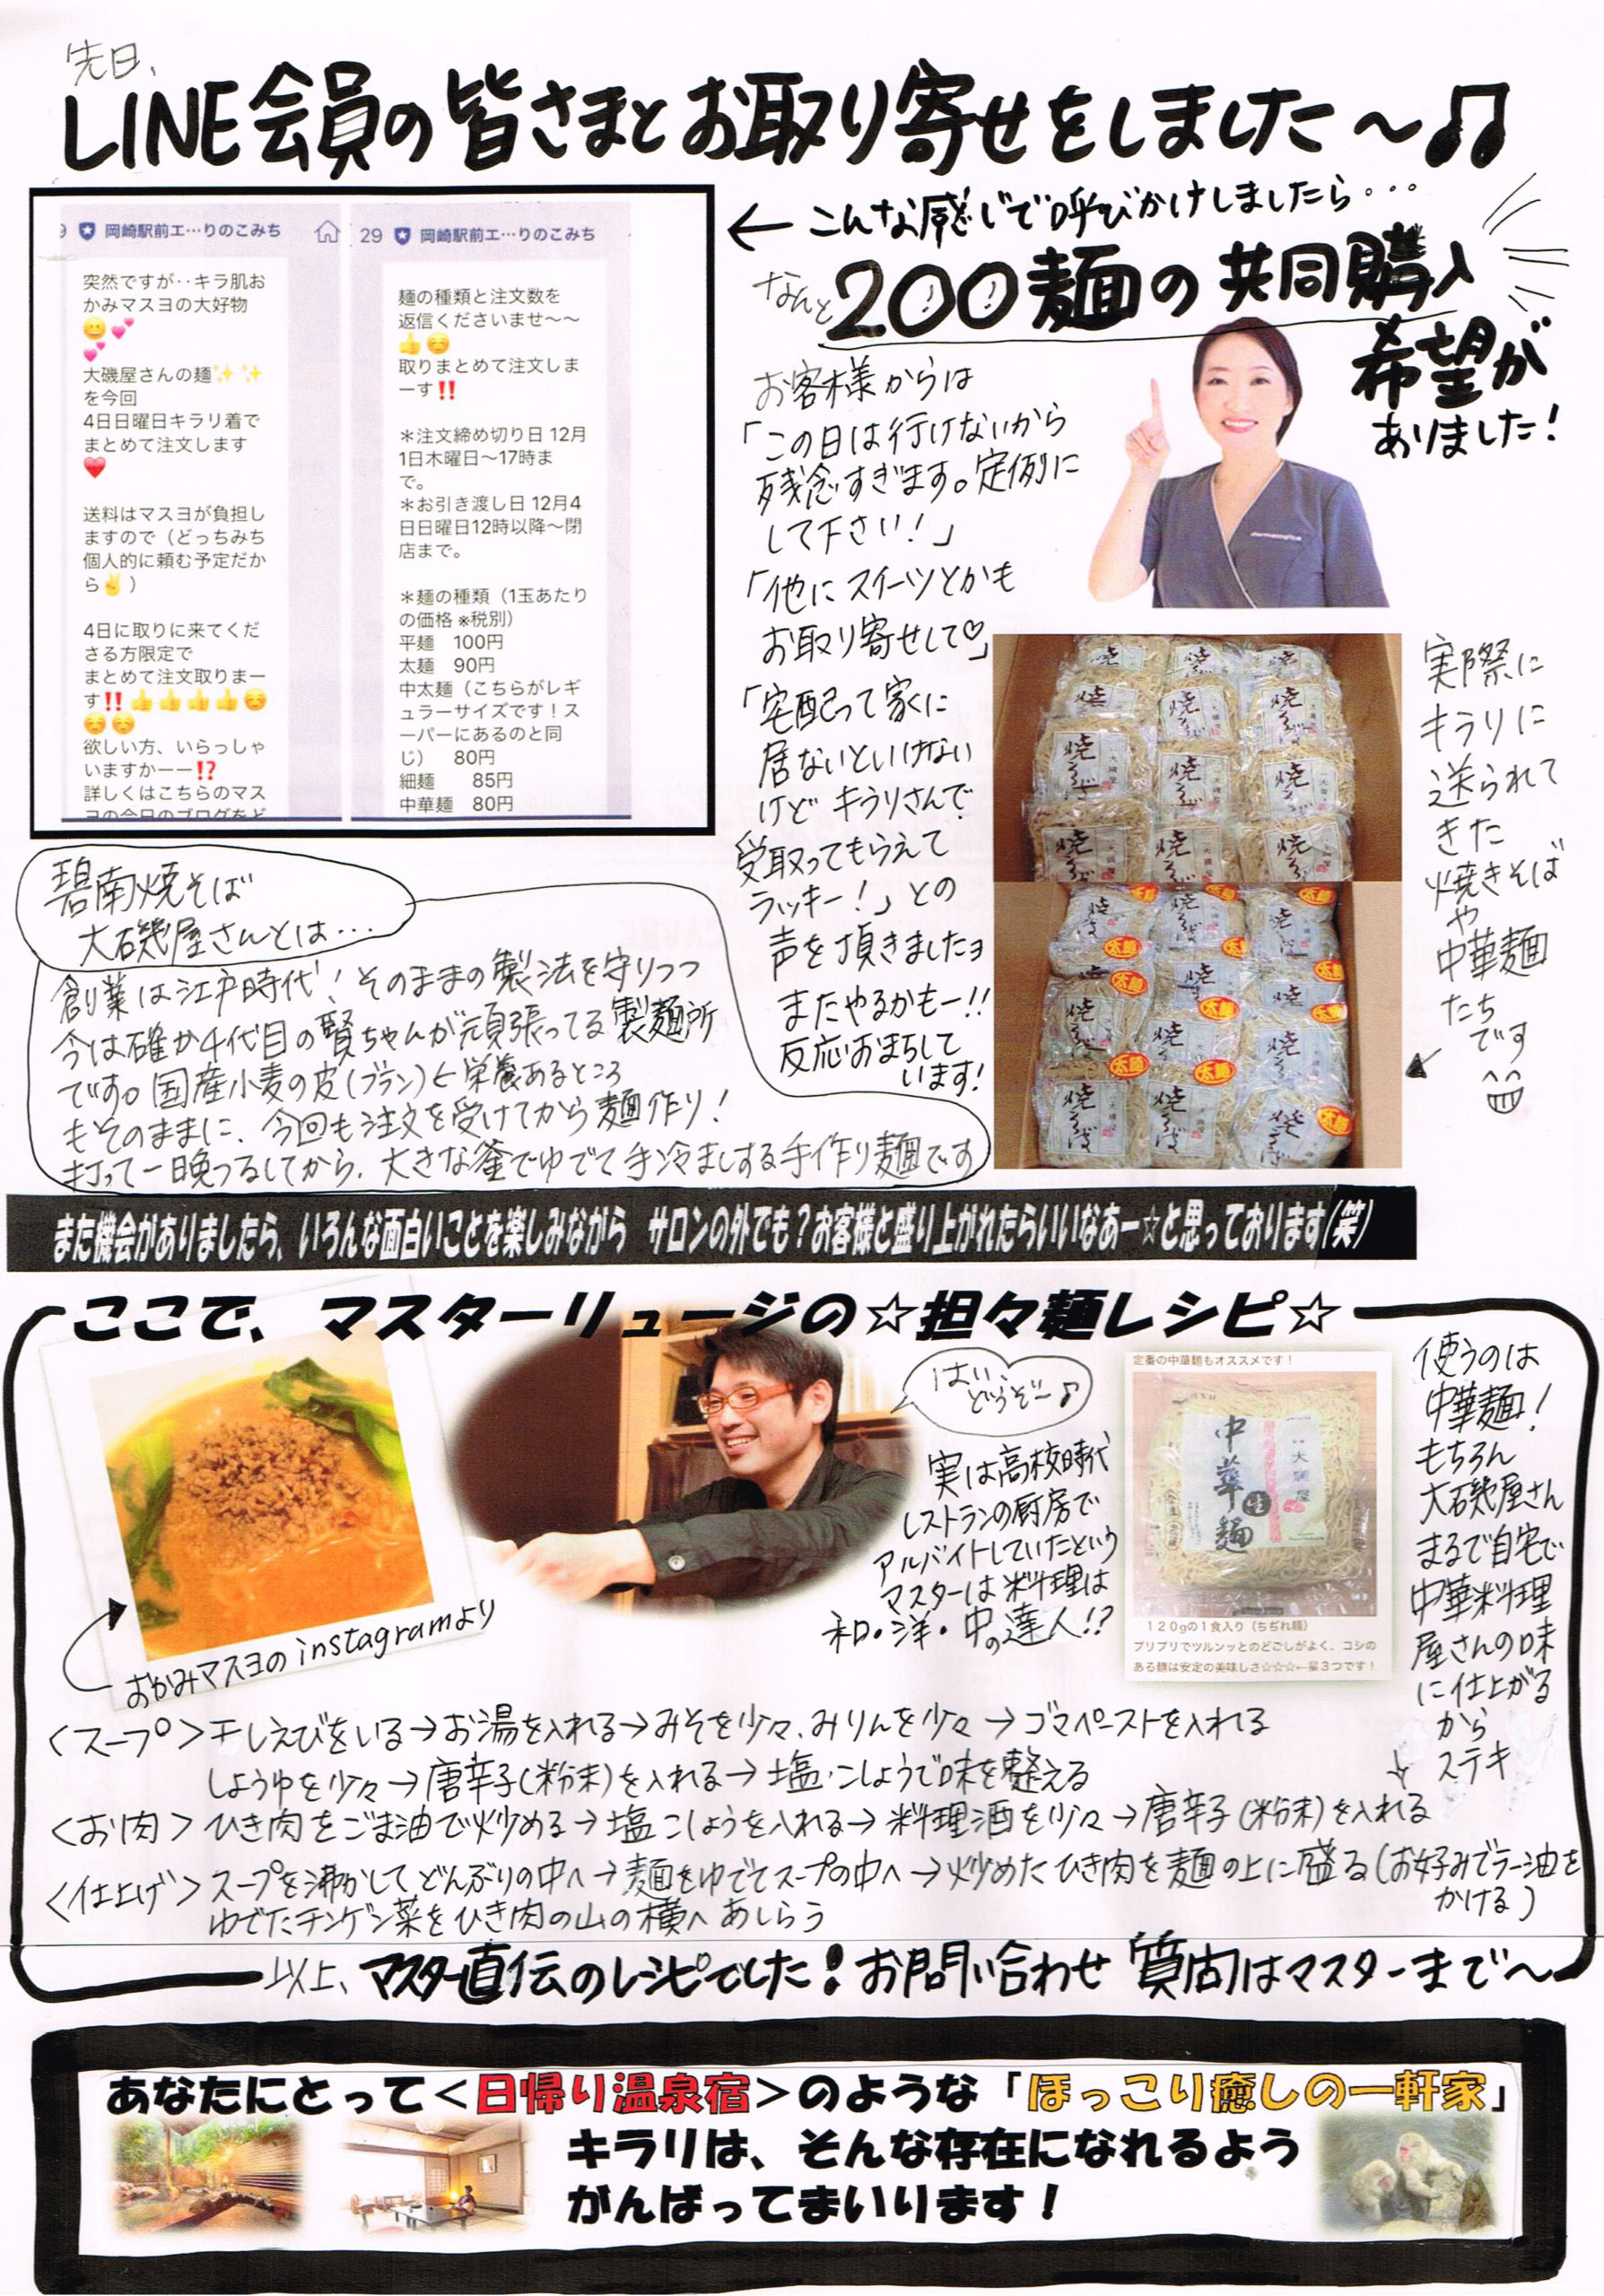 先日、
LINE会員の皆さまとお取り寄せをしました～♫
9 岡崎駅前エ…りのこみち
突然ですが‥キラ肌お
かみマスヨの大好物
😀💕
💕
大磯屋さんの麺✨✨
を今回
4日日曜日キラリ着で
まとめて注文します
❤️
送料はマスヨが負担し
ますので（どっちみち
個人的に頼む予定だか
ら✌️）
4日に取りに来てくだ
さる方限定で
まとめて注文取りまー
す‼️👍👍👍👍☺️
☺️☺️
欲しい方、いらっしゃ
いますかーー⁉️
詳しくはこちらのマス
ヨの今日のブログをど
29 岡崎駅前エ…りのこみち
麺の種類と注文数を
返信くださいませ〜〜
👍☺️
取りまとめて注文しま
ーす‼️
＊注文締め切り日 12月
1日木曜日〜17時ま
で。
＊お引き渡し日 12月4
日日曜日12時以降〜閉
店まで。
＊麺の種類（1玉あたり
の価格 ※税別）
平麺　100円
太麺　90円
中太麺（こちらがレギ
ュラーサイズです！ス
ーパーにあるのと同
じ）　80円
細麺　85円
中華麺　80円
← こんな感じで呼びかけしましたら・・・
なんと
200麺の共同購入
希望が
ありました！
お客様からは
「この日は行けないから
残念すぎます。定例に
して下さい！」
「他にスイーツとかも
お取り寄せして♡」
「宅配って家に
居ないといけない
けど キラリさんで
受取ってもらえて
ラッキー！」との
声を頂きましたヨ
またやるかもー!!
反応おまちして
います！
dermalogica
焼そば
大磯屋
太麺
実際に
キラリに
送られて
きた
焼きそば
や
中華麺
たち
です
碧南焼そば
大磯屋さんとは…
創業は江戸時代！そのままの製法を守りつつ
今は確か4代目の賢ちゃんが頑張ってる製麺所
です。国産小麦の皮(ブラン)←栄養あるところ
もそのままに、今回も注文を受けてから麺作り！
打って一晩つるしてから、大きな釜でゆでて手冷ましする手作り麺です
また機会がありましたら、いろんな面白いことを楽しみながら　サロンの外でも？お客様と盛り上がれたらいいなあー☆と思っております(笑)
ここで、マスターリュージの☆担々麺レシピ☆
おかみマスヨのinstagramより
はい、
どうぞー♪
実は高校時代
レストランの厨房で
アルバイトしていたという
マスターは料理は
和・洋・中の達人!?
定番の中華麺もオススメです！
中華麺
生
大磯屋
１２０gの１食入り（ちぢれ麺）
プリプリでツルンッとのどごしがよく、コシの
ある麺は安定の美味しさ☆☆☆←星３つです！
使うのは
中華麺！
もちろん
大磯屋さん
まるで自宅で
中華料理
屋さんの味
に仕上がる
から
ステキ
<スープ>干しえびをいる→お湯を入れる→みそを少々、みりんを少々→ゴマペーストを入れる
しょうゆを少々→唐辛子(粉末)を入れる→塩・こしょうで味を整える
<お肉>ひき肉をごま油で炒める→塩こしょうを入れる→料理酒を少々→唐辛子(粉末)を入れる
<仕上げ>スープを沸かしてどんぶりの中へ→麺をゆでてスープの中へ→炒めたひき肉を麺の上に盛る(お好みでラー油を
かける)
ゆでたチンゲン菜をひき肉の山の横へあしらう
以上、マスター直伝のレシピでした！お問い合わせ 質問はマスターまで〜
あなたにとって＜日帰り温泉宿＞のような「ほっこり癒しの一軒家」
キラリは、そんな存在になれるよう
がんばってまいります！